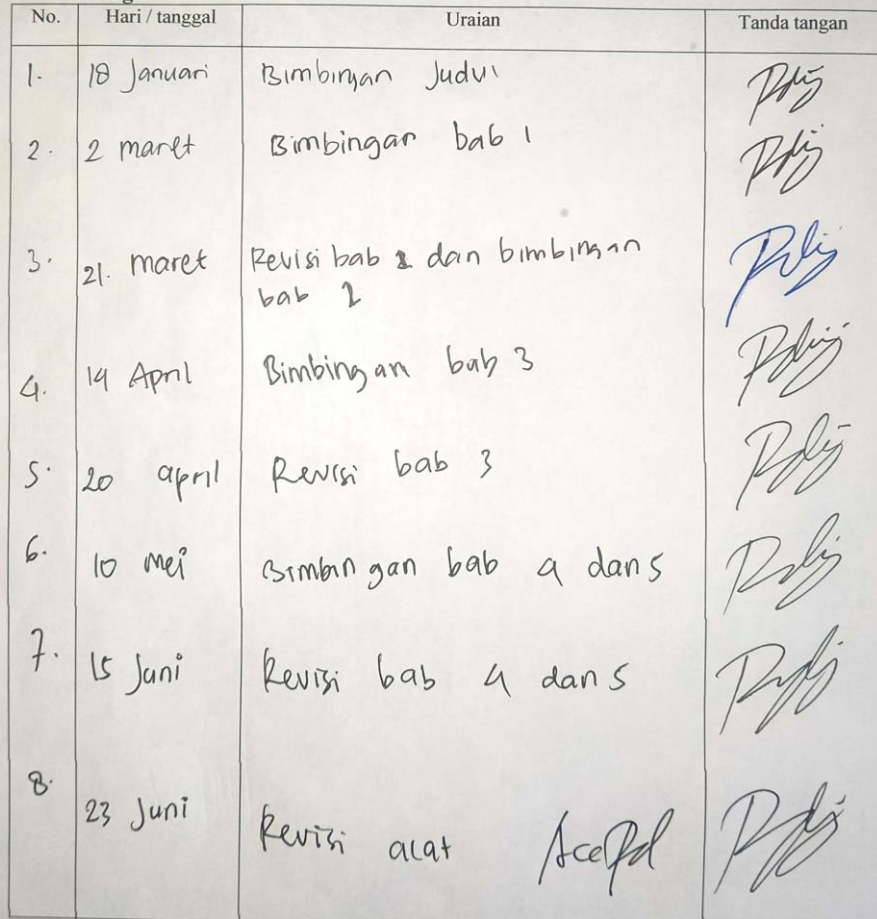 No. Hari / tanggal Uraian Tanda tangan
1. 18 Januari Bimbingan Judul
2. 2 maret Bimbingan bab 1
3. 21. maret Revisi bab dan bimbingan
bab 2
4. 14 April Bimbingan bab 3
5. 20 april Revisi bab 3
6. 10 mei Bimbingan bab 4 dan 5
7. 15 Juni Revisi bab 4 dan 5
8. 23 Juni Revisi